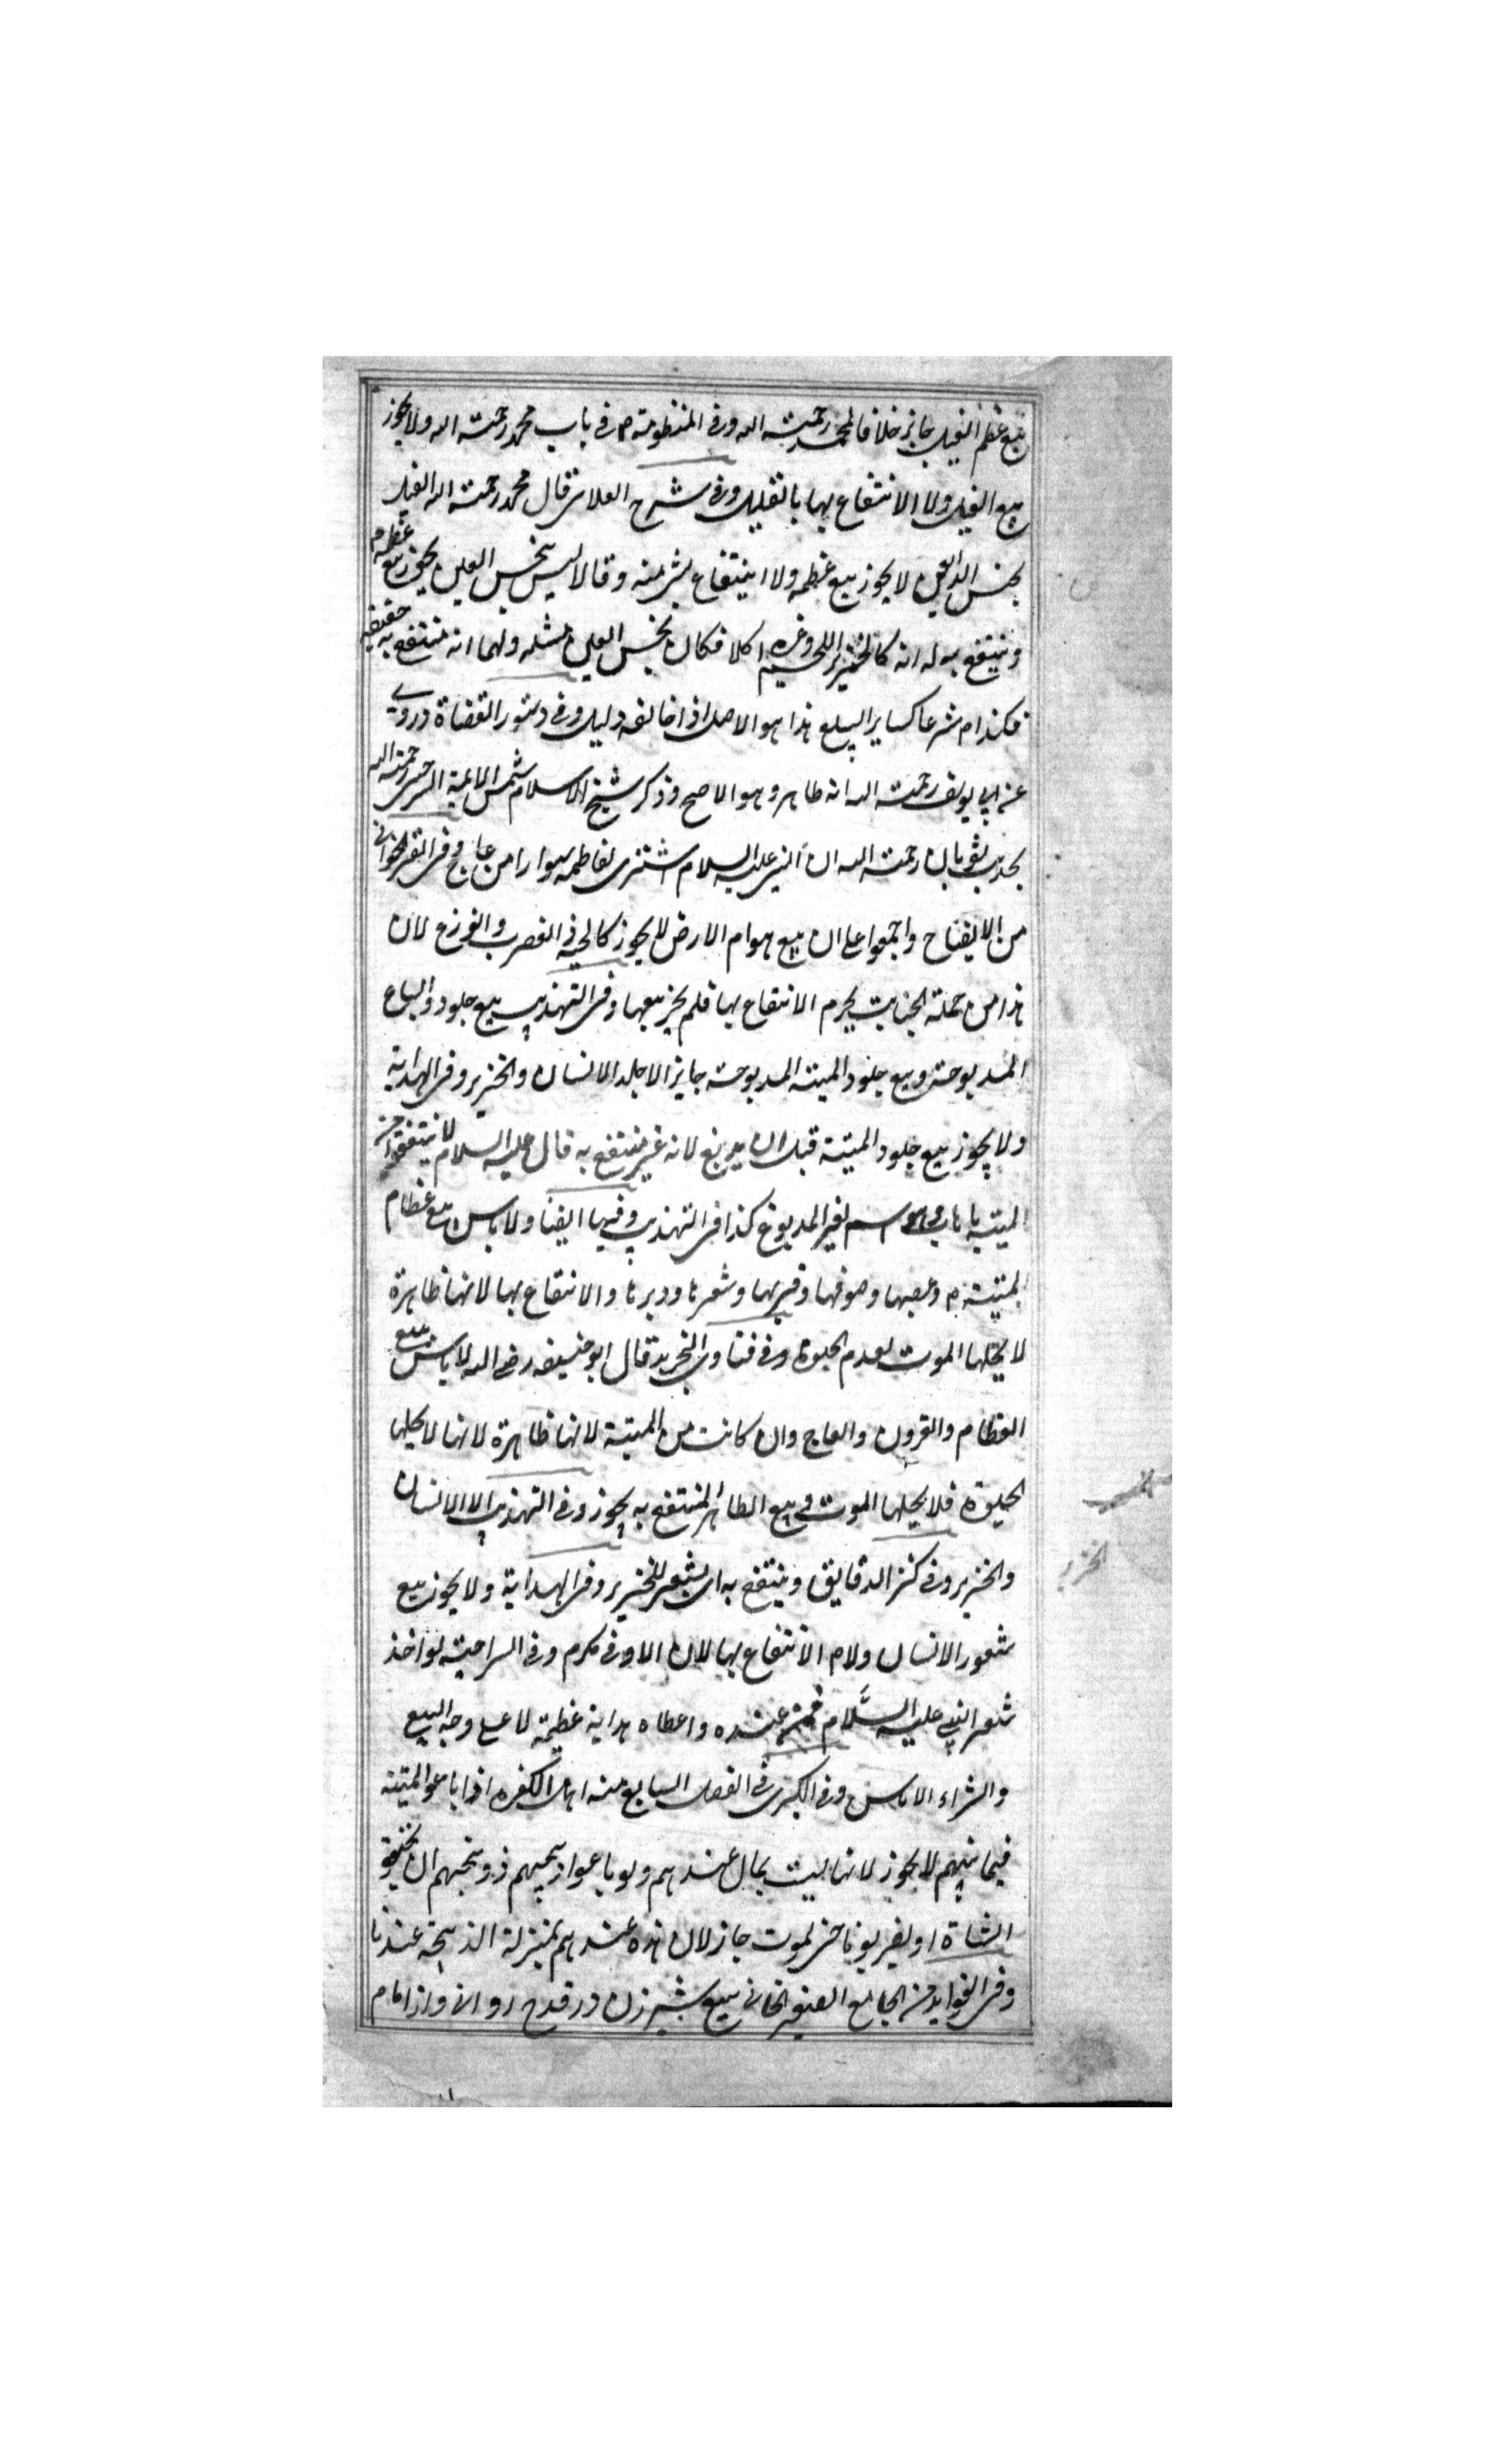 بيع عظم الفيل جايز خلافا لمحمد رحمته الله وفى المنظومة م فى باب محمد رحمته الله ولا يجوز
بيع الفيل ولا الانتفاع بها بالقليل وفى شرح العلائى قال محمد رحمته الله الفيل
نجس العين لا يجوز بيع عظمه ولا انتفاع بشئ منه وقالا ليس بنجس العين يجوز بيع عظمه
وينتفع به له انه كالخنزير اللحم وغيره اكلا فكان نجس العين مثله ولهما انه منتفع به حقيقة
فكذا م شرعا كساير السلع هذا هو الاصل اذا خالفه دليل وفى دستور القضاة وروى
عن ابى يوسف رحمته الله انه طاهر وهو الاصح وذكر شيخ الاسلام شمس الايمة السرخسى رحمته الله
بحديث ثوبان رحمته الله ان النبى عليه السلام اشترى لفاطمة سوارا من عاج وفى
من الايضاح واجمعوا على ان بيع هوام الارض لا يجوز كالحية والعقرب والوزغ لان
هذا من جملة الخبايث يحرم الانتفاع بها فلم يجز بيعها وفى التهذيب بيع جلود السباع
المدبوغة وبيع جلود الميتة المدبوغة جايز الا جلد الانسان والخنزير وفى الهداية
ولا يجوز بيع جلود الميتة قبل ان يدبغ لانه غير منتفع به قال عليه السلام لا تنتفعوا من
الميتة باهاب وهو اسم لغير المدبوغ كذا فى التهذيب وفيها ايضا ولا باس ببيع عظام
الميتة م وعصبها وصوفها وقرنها وشعرها ووبرها والانتفاع بها لانها طاهرة
لا يحلها الموت لعدم الحيوة وفى فتاوى التجريد قال ابو حنيفه رضى الله لا باس ببيع
العظام والقرون والعاج وان كانت من الميتة لانها طاهرة لانها لا يحلها
الحيوة فلا يحلها الموت فى بيع الطاهر المنتفع به يجوز وفى التهذيب الا الانسان
والخنزير وفى كنز الدقايق وينتفع به اى بشعر الخنزير وفى الهداية ولا يجوز بيع
شعور الانسان ولا م الانتفاع بها لان الادمى مكرم وفى السراجية لو اخذ
شعر النبى عليه السَّلام ممن عنده واعطاه هداية عظيمة لا على وجه البيع
والشراء لا باس وفى الكبرى فى الفصل السابع منه اهل الكفره اذا باعوا الميتة
فيما بينهم لا يجوز لانها ليست بمال عندهم ولو باعوا ذبيحهم وذبحهم ان يخنقو
الشاة او يضربونا حتى لموت جاز لان هذه عندهم بمنزلة الذبيحة عندنا
وفى الفوايد من الجامع الصغير الخانى بيع شير زن در قدح روا نى و از امام
الخنزير